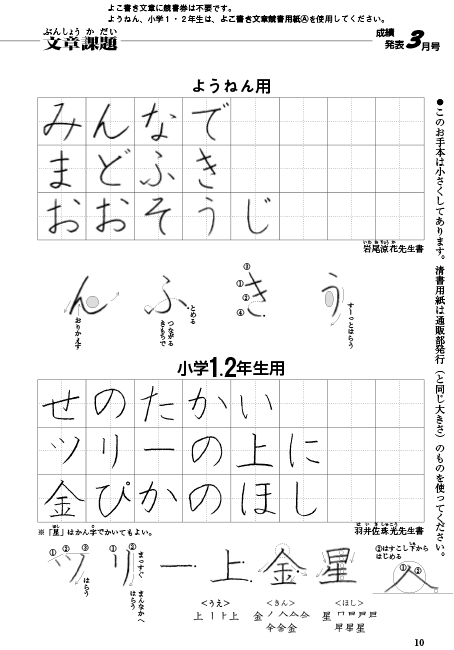 よこ書き文章に競書券は不要です。
ようねん、小学1・2年生は、よこ書き文章競書用紙Ⓐを使用してください。
ぶんしょう か だい
文章課題
成績
発表3月号
ようねん用
みんなで
まどふき
おおそうじ
いわ お りょう か
岩尾涼花先生書
●このお手本は小さくしてあります。清書用紙は通販部発行(と同じ大きさ)のものを使ってください。
ん ふ き う
おりかえす
とめる
つながる
きもちで
① ① ② ④
すーっとはらう
小学1.2年生用
せのたかい
ツリーの上に
金ぴかのほし
※「星」はかん字でかいてもよい。
ほし
じ
は い さ しゅこう
羽井佐珠光先生書
ツリー上金星人
① ② ③
はらう
① ②
まっすぐ
まんなかへ
はらう
②はすこし下から
はじめる
① ②
<うえ>
上 丨 ⺊ 上
<きん>
金 ノ 人 𠆢 亼
仐 仐 金 金
<ほし>
星
星
10